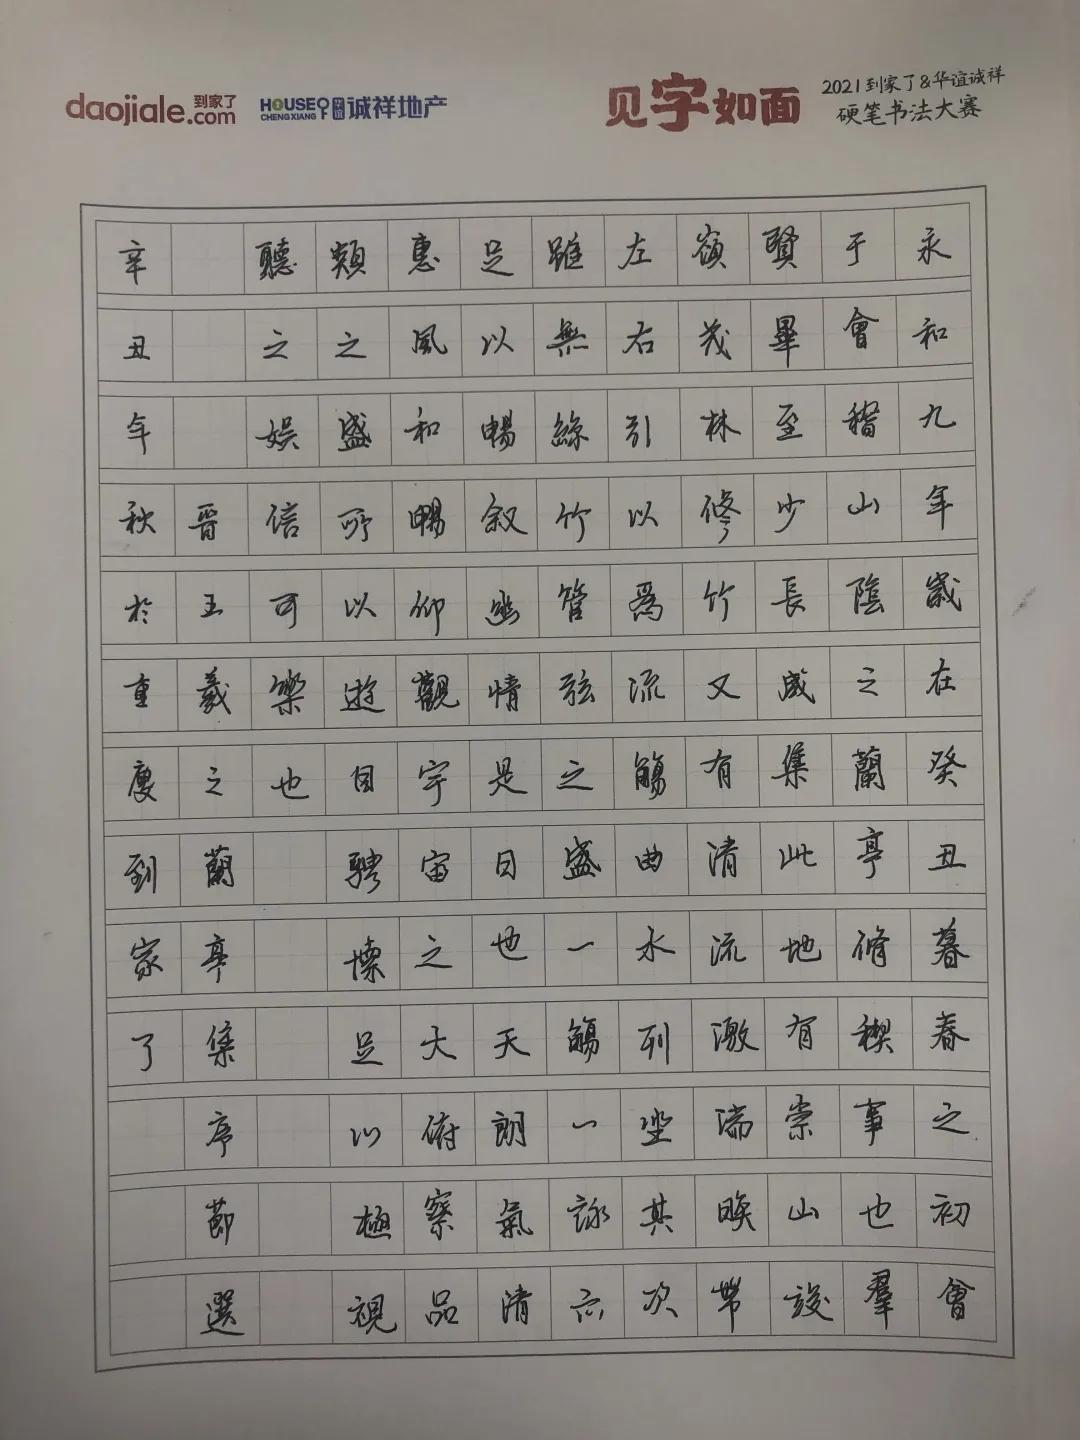 daojiale.com 到家了
HOUSE CHENGXIANG 诚祥地产
见字如面
2021到家了&华谊诚祥
硬笔书法大赛
永和九年歲在癸丑暮春之初會
于會稽山陰之蘭亭脩禊事也羣
賢畢至少長咸集此地有崇山峻
嶺茂林修竹又有清流激湍暎帶
左右引以爲流觴曲水列坐其次
雖無絲竹管弦之盛一觴一詠亦
足以暢叙幽情是日也天朗氣清
惠風和暢仰觀宇宙之大俯察品
類之盛所以遊目騁懷足以極視
聽之娱信可樂也
晉王羲之蘭亭集序節選
辛丑年秋於重慶到家了